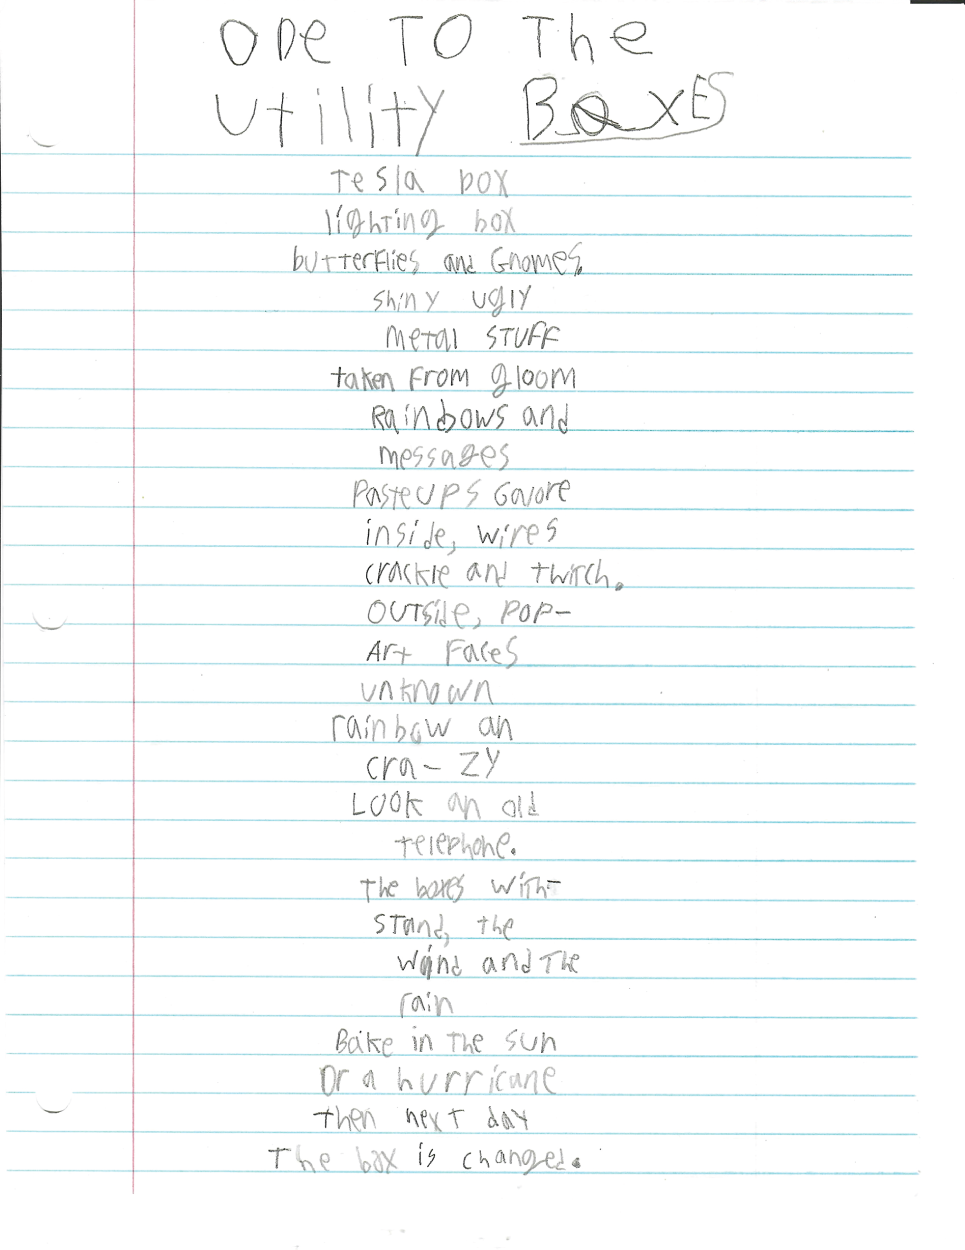 ODe TO The
Utility BOxES
Tesla box
lighting box
butterflies and Gnomes.
shiny ugly
metal STUFF
taken From gloom
Rainbows and
messages
PasteUPS Galore
inside, wires
crackle and twitch.
OUTside, POP-
Art Faces
unknown
rainbow an
cra- ZY
LOOK an old
telephone.
The boxes with-
STand, the
wind and The
rain
Bake in The sun
Or a hurricane
then next day
The box is changed.